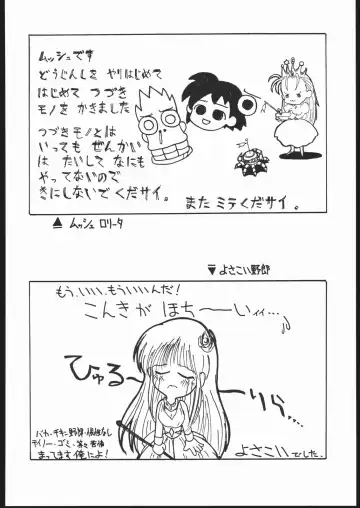 ムッシュです
どうじんしを やりはじめて
はじめて つづき
モノを かきました
つづきモノとは
いっても ぜんかい
は たいして なにも
やってないので
きにしないで くだサイ。
また ミテくだサイ。
▲ ムッシュ ロリータ
▼ よさこい野郎
もう、いい、もういいんだ!
こんきが ほち〜しィィ…♪
ひゅる〜
〜りら…
バカ・チキン野郎・根性なし
テイノー・ゴミ・
まってます俺によ!
よさこいでした。